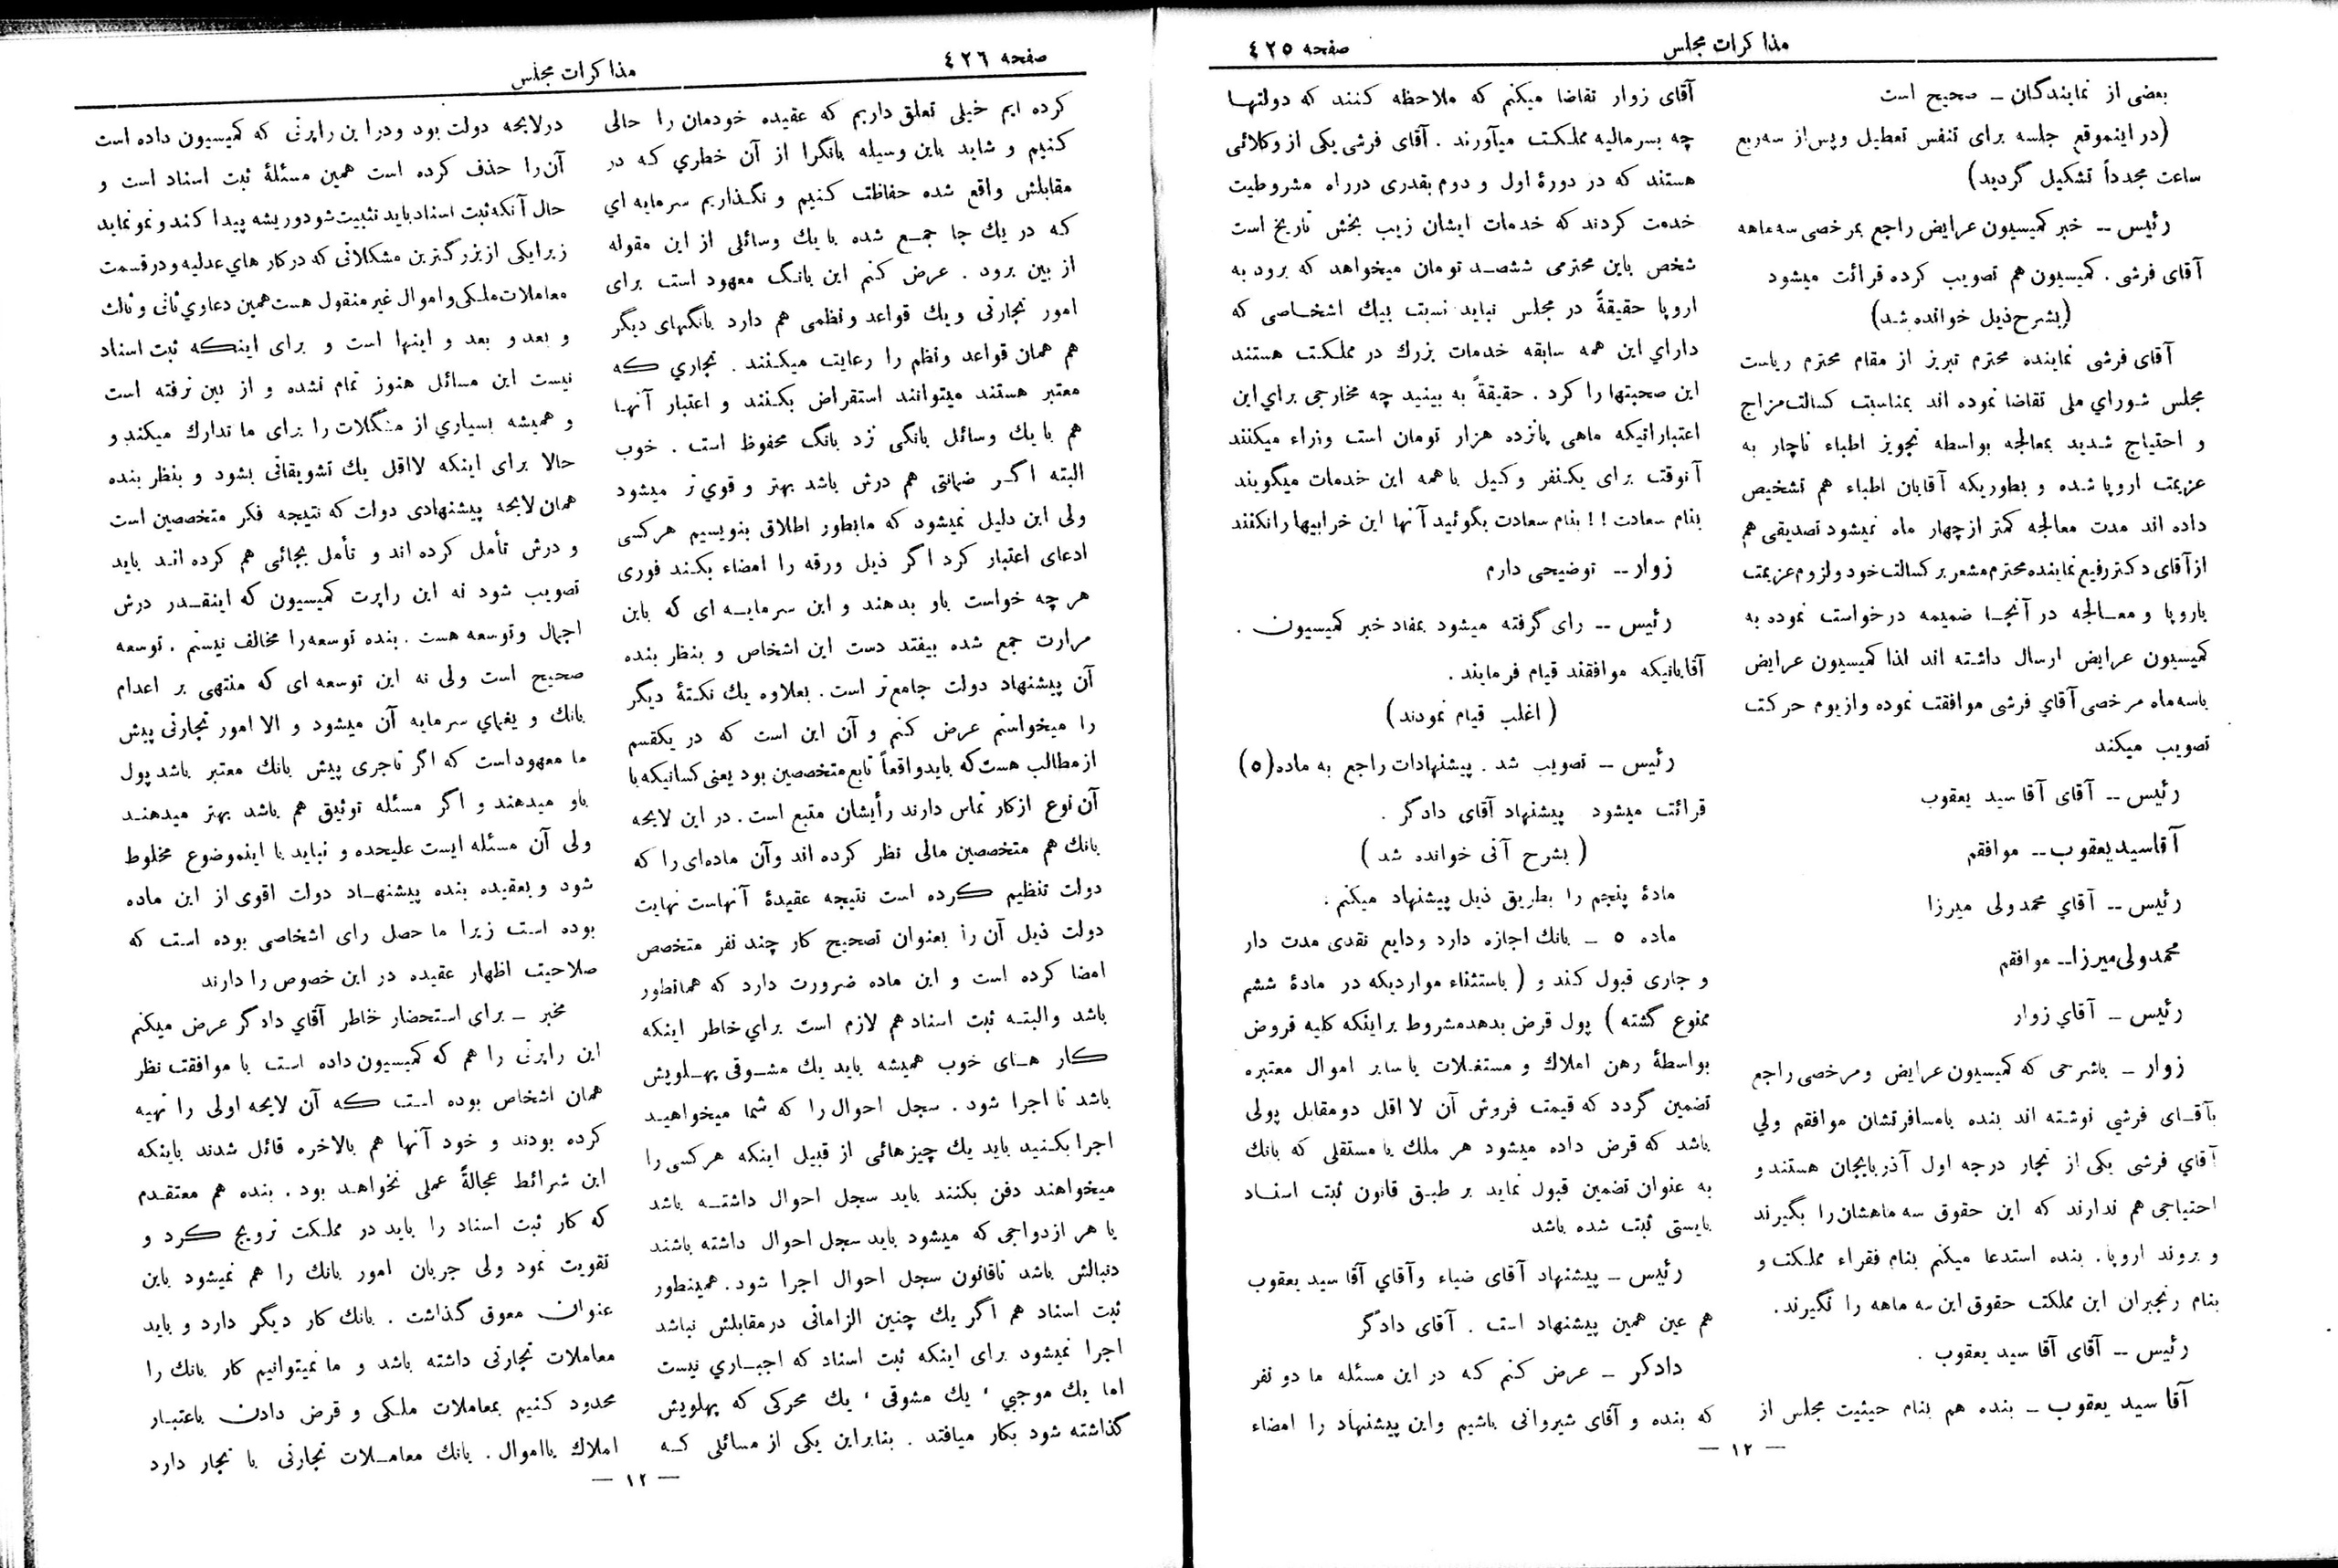 مذاکرات مجلس
صفحه ٤٢٥
بعضی از نمایندگان ــ صحیح است
(در اینموقع جلسه برای تنفس تعطیل و پس از سه ربع
ساعت مجدداً تشکیل گردید)
رئیس ــ خبر کمیسیون عرایض راجع بمرخصی سه ماهه
آقای فرشی . کمیسیون هم تصویب کرده قرائت میشود
(بشرح ذیل خوانده شد)
آقای فرشی نماینده محترم تبریز از مقام محترم ریاست
مجلس شورای ملی تقاضا نموده اند بمناسبت کسالت مزاج
و احتیاج شدید بمعالجه بواسطه تجویز اطباء ناچار به
عزیمت اروپا شده و بطوریکه آقایان اطباء هم تشخیص
داده اند مدت معالجه کمتر از چهار ماه نمیشود تصدیقی هم
از آقای دکتر رفیع نماینده محترم مشعر بر کسالت خود و لزوم عزیمت
باروپا و معالجه در آنجا ضمیمه درخواست نموده به
کمیسیون عرایض ارسال داشته اند لذا کمیسیون عرایض
باسه ماه مرخصی آقای فرشی موافقت نموده و از یوم حرکت
تصویب میکند
رئیس ــ آقای آقا سید یعقوب
آقا سید یعقوب ــ موافقم
رئیس ــ آقای محمد ولی میرزا
محمد ولی میرزا ــ موافقم
رئیس ــ آقای زوار
زوار ــ باشرحی که کمیسیون عرایض و مرخصی راجع
بآقای فرشی نوشته اند بنده بامسافرتشان موافقم ولی
آقای فرشی یکی از تجار درجه اول آذربایجان هستند و
احتیاجی هم ندارند که این حقوق سه ماهشان را بگیرند
و بروند اروپا . بنده استدعا میکنم بنام فقراء مملکت و
بنام رنجبران این مملکت حقوق این سه ماهه را نگیرند .
رئیس ــ آقای آقا سید یعقوب .
آقا سید یعقوب ــ بنده هم بنام حیثیت مجلس از
آقای زوار تقاضا میکنم که ملاحظه کنند که دولتها
چه بسر مالیه مملکت میآورند . آقای فرشی یکی از وکلائی
هستند که در دورهٔ اول و دوم بقدری در راه مشروطیت
خدمت کردند که خدمات ایشان زیب بخش تاریخ است
شخص باین محترمی ششصد تومان میخواهد که برود به
اروپا حقیقةً در مجلس نباید نسبت بیك اشخاصی که
دارای این همه سابقه خدمات بزرك در مملکت هستند
این صحبتها را کرد . حقیقةً به بینید چه مخارجی برای این
اعتباراتیکه ماهی پانزده هزار تومان است وزراء میکنند
آنوقت برای یکنفر وکیل باهمه این خدمات میگویند
بنام سعادت !! بنام سعادت بگوئید آنها این خرابیها را نکنند
زوار ــ توضیحی دارم
رئیس ــ رای گرفته میشود بمفاد خبر کمیسیون .
آقایانیکه موافقند قیام فرمایند .
(اغلب قیام نمودند)
رئیس ــ تصویب شد . پیشنهادات راجع به ماده (٥)
قرائت میشود پیشنهاد آقای دادگر .
(بشرح آتی خوانده شد)
مادهٔ پنجم را بطریق ذیل پیشنهاد میکنم :
ماده ٥ ــ بانك اجازه دارد ودایع نقدی مدت دار
و جاری قبول کند و (باستثناء مواردیکه در مادهٔ ششم
ممنوع گشته) پول قرض بدهد مشروط بر اینکه کلیه قروض
بواسطهٔ رهن املاك و مستغلات یا سایر اموال معتبره
تضمین گردد که قیمت فروش آن لااقل دو مقابل پولی
باشد که قرض داده میشود هر ملك یا مستقلی که بانك
به عنوان تضمین قبول نماید بر طبق قانون ثبت اسناد
بایستی ثبت شده باشد
رئیس ــ پیشنهاد آقای ضیاء و آقای آقا سید یعقوب
هم عین همین پیشنهاد است . آقای دادگر
دادگر ــ عرض کنم که در این مسئله ما دو نفر
که بنده و آقای شیروانی باشیم و این پیشنهاد را امضاء
— ۱۲ —
صفحه ٤٢٦
مذاکرات مجلس
کرده ایم خیلی تعلق داریم که عقیده خودمان را حالی
کنیم و شاید باین وسیله بانگرا از آن خطری که در
مقابلش واقع شده حفاظت کنیم و نگذاریم سرمایه ای
که در یك جا جمع شده با یك وسائلی از این مقوله
از بین برود . عرض کنم این بانگ معهود است برای
امور تجارتی و یك قواعد و نظمی هم دارد بانگهای دیگر
هم همان قواعد و نظم را رعایت میکنند . تجاری که
معتبر هستند میتوانند استقراض بکنند و اعتبار آنها
هم با یك وسائل بانگی نزد بانگ محفوظ است . خوب
البته اگر ضمانتی هم درش باشد بهتر و قوی تر میشود
ولی این دلیل نمیشود که مابطور اطلاق بنویسیم هر کسی
ادعای اعتبار کرد اگر ذیل ورقه را امضاء بکند فوری
هر چه خواست باو بدهند و این سرمایه ای که باین
مرارت جمع شده بیفتد دست این اشخاص و بنظر بنده
آن پیشنهاد دولت جامع تر است . بعلاوه یك نکتهٔ دیگر
را میخواستم عرض کنم و آن این است که در یکقسم
از مطالب هست که باید واقعاً تابع متخصصین بود یعنی کسانیکه با
آن نوع از کار تماس دارند رأیشان متبع است . در این لایحه
بانك هم متخصصین مالی نظر کرده اند و آن ماده ای را که
دولت تنظیم کرده است نتیجه عقیدهٔ آنهاست نهایت
دولت ذیل آن را بعنوان تصحیح کار چند نفر متخصص
امضا کرده است و این ماده ضرورت دارد که همانطور
باشد و البته ثبت اسناد هم لازم است برای خاطر اینکه
کار های خوب همیشه باید یك مشوقی پهلویش
باشد تا اجرا شود . سجل احوال را که شما میخواهید
اجرا بکنید باید یك چیزهائی از قبیل اینکه هر کسی را
میخواهند دفن بکنند باید سجل احوال داشته باشد
یا هر ازدواجی که میشود باید سجل احوال داشته باشند
دنبالش باشد تا قانون سجل احوال اجرا شود . همینطور
ثبت اسناد هم اگر یك چنین الزاماتی در مقابلش نباشد
اجرا نمیشود برای اینکه ثبت اسناد که اجباری نیست
اما یك موجبی ، یك مشوقی ، یك محرکی که پهلویش
گذاشته شود بکار میافتد . بنابراین یکی از مسائلی که
در لایحه دولت بود و در این راپرتی که کمیسیون داده است
آن را حذف کرده است همین مسئلهٔ ثبت اسناد است و
حال آنکه ثبت اسناد باید تثبیت شود و ریشه پیدا کند و نمو نماید
زیرا یکی از بزرگترین مشکلاتی که در کار های عدلیه و در قسمت
معاملات ملکی و اموال غیر منقول هست همین دعاوی ثانی و ثالث
و بعد و بعد و اینها است و برای اینکه ثبت اسناد
نیست این مسائل هنوز تمام نشده و از بین نرفته است
و همیشه بسیاری از مشکلات را برای ما تدارك میکند و
حالا برای اینکه لااقل یك تشویقاتی بشود و بنظر بنده
همان لایحه پیشنهادی دولت که نتیجه فکر متخصصین است
و درش تأمل کرده اند و تأمل بجائی هم کرده اند باید
تصویب شود نه این راپرت کمیسیون که اینقدر درش
اجمال و توسعه هست . بنده توسعه را مخالف نیستم . توسعه
صحیح است ولی نه این توسعه ای که منتهی بر اعدام
بانك و یغمای سرمایه آن میشود و الا امور تجارتی پیش
ما معهود است که اگر تاجری پیش بانك معتبر باشد پول
باو میدهند و اگر مسئله توثیق هم باشد بهتر میدهند
ولی آن مسئله ایست علیحده و نباید با اینموضوع مخلوط
شود و بعقیده بنده پیشنهاد دولت اقوی از این ماده
بوده است زیرا ما حصل رای اشخاصی بوده است که
صلاحیت اظهار عقیده در این خصوص را دارند
مخبر ــ برای استحضار خاطر آقای دادگر عرض میکنم
این راپرتی را هم که کمیسیون داده است با موافقت نظر
همان اشخاص بوده است که آن لایحه اولی را تهیه
کرده بودند و خود آنها هم بالاخره قائل شدند باینکه
این شرائط عجالةً عملی نخواهد بود . بنده هم معتقدم
که کار ثبت اسناد را باید در مملکت ترویج کرد و
تقویت نمود ولی جریان امور بانك را هم نمیشود باین
عنوان معوق گذاشت . بانك کار دیگر دارد و باید
معاملات تجارتی داشته باشد و ما نمیتوانیم کار بانك را
محدود کنیم بمعاملات ملکی و قرض دادن باعتبار
املاك یااموال . بانك معاملات تجارتی با تجار دارد
— ۱۲ —